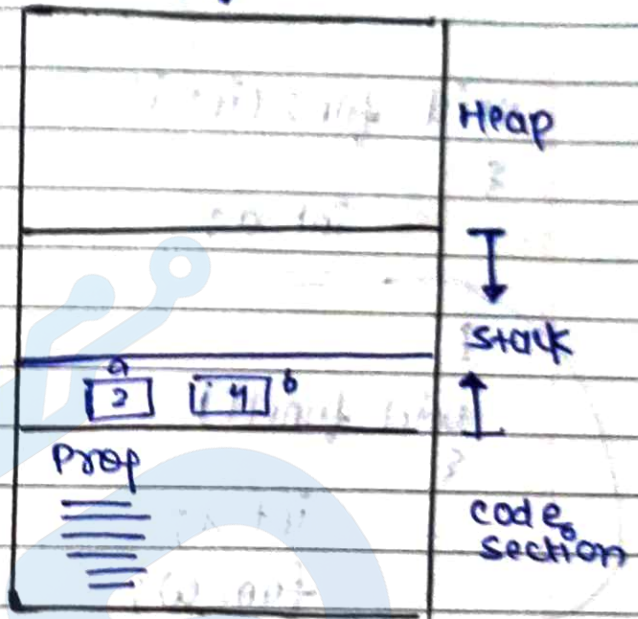 Heap
Stack
a
2
4
b
Prop
code
section